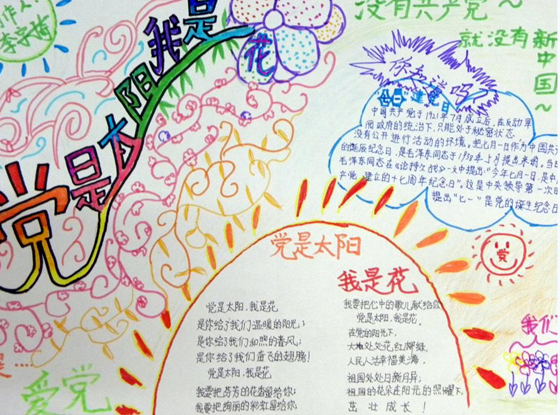 作人:
李宇婷
党是太阳我是花
没有共产党~
就没有新中国~
你知道吗?
"七一"建党日
中国共产党于1921年7月成立后,在反动军
阀政府的统治下,只能处于秘密状态,
没有公开进行活动的环境。把七月一日作为中国共
的诞辰纪念日,是毛泽东同志于1938年5月提出来的。当
毛泽东同志在《论持久战》一文中提出:"今年七月一日,是中
产党建立的十七周年纪念日"。这是中央领导第一次
提出"七一"是党的诞生纪念日
党
党是太阳
我是花
党是太阳,我是花
是你给了我们温暖的阳光;
是你给了我们和煦的春风;
是你给了我们奋飞的翅膀!
党是太阳,我是花
我要把芬芳的花蕾留给你;
我要把绚丽的彩虹留给你
我要把心中的歌儿献给你
党是太阳,我是花,
在党的阳光下,
大地处处花红柳绿
人民人活幸福美满
祖国处处日新月异,
祖国的花朵在阳光的照耀下,
茁壮成长!
爱党
我们